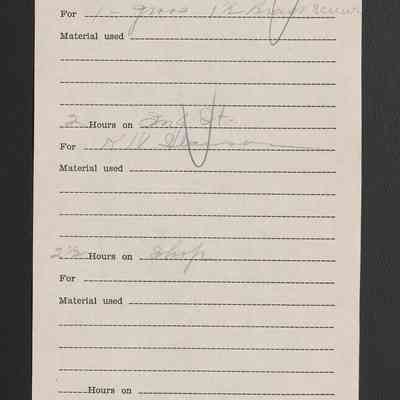 For 1- gross 1½ Brass screws
Material used
2 Hours on Inc St.
For K W
Material used
2½ Hours on Shop
For
Material used
Hours on